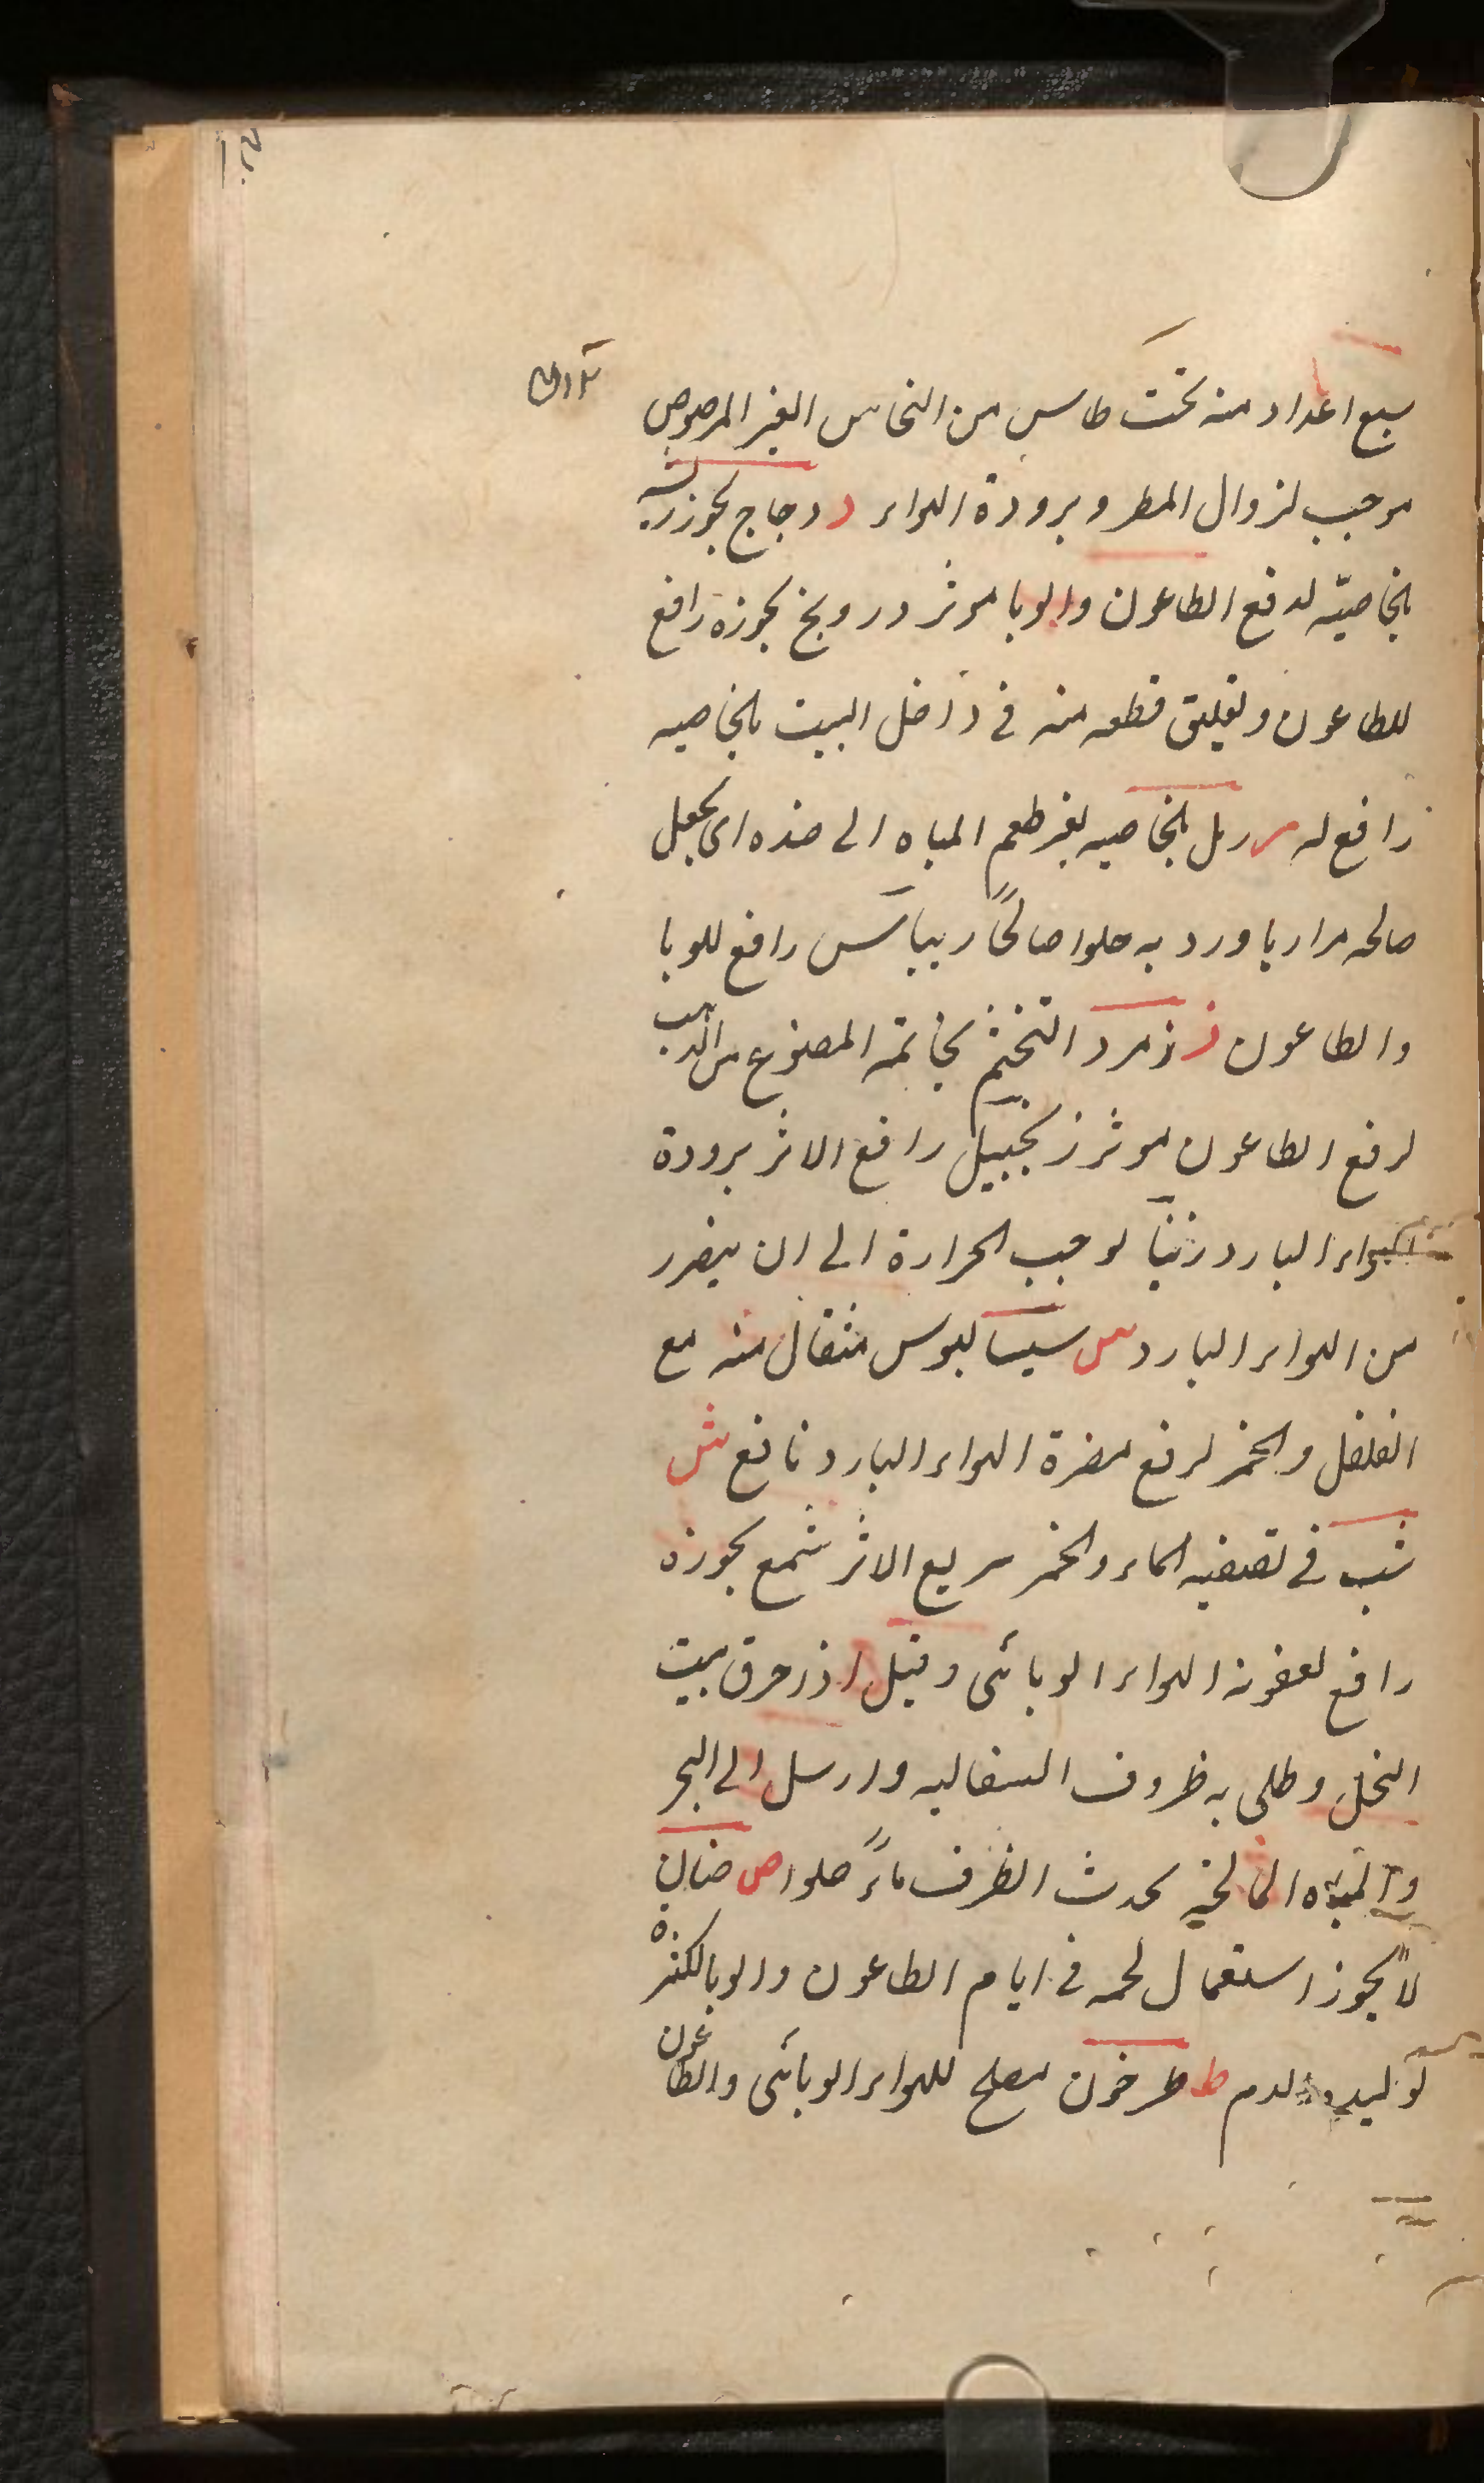 سبع اعداد منه تحت طاس من النحاس الغير المرصوص
موجب لنزوال المطر و برودة الهواء د دجاج بجوزته
بالخاصیّه لدفع الطاعون والوبا موثر درونج بجوزه رافع
للطاعون وتعليق قطعه منه فى داخل البيت بالخاصيه
رافع له ر رمل بالخاصيه يغير طعم المياه الى ضده اى يجعل
صالحه مرا ريا ورد به حلوا صالحًا ريباس رافع للوبا
والطاعون ز زمرد التختم بخاتمه المصنوع من الذهب
لرفع الطاعون موثر زنجبيل رافع الاثر برودة
الهواء البارد زنباً لوجب الحرارة الى ان يضرر
من الهواء البارد س سيساليوس مثقال منه مع
الفلفل والخمر لرفع مضرة الهواء البارد نافع ش
شب فى تصفيه الماء والخمر سريع الاثر شمع بجوزه
رافع لعفونه الهواء الوبائى وقيل اذر حرق بيت
النحل وطلى به ظروف السفاليه وارسل الى البحر
والمياه المالحه يحدث الظرف ماءً حلوا ص ضان
لا يجوز استعمال لحمه فى ايام الطاعون والوبا لكثرة
توليده الدم ط طرخون مصلح للهواء الوبائى والطاعون